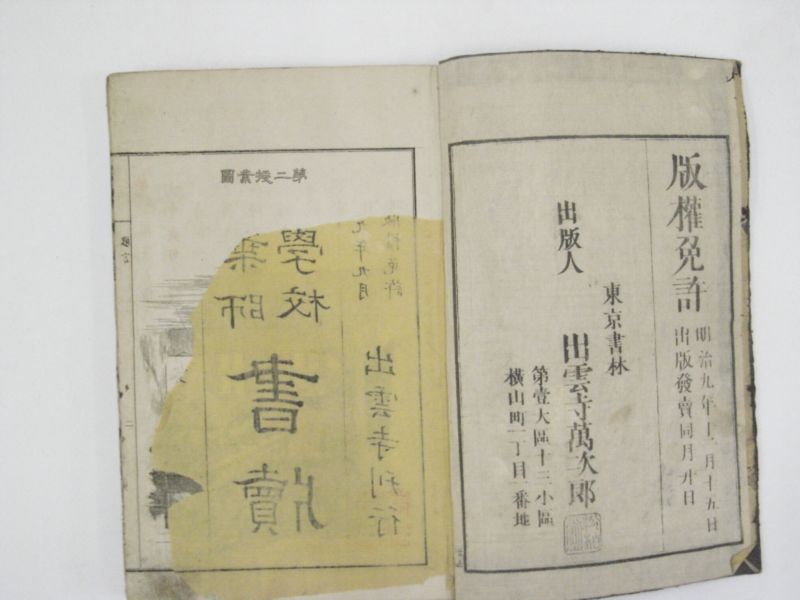 版權免許
明治九年
出版發賣同月
東京書林
出版人 出雲寺萬次郎
第壹大區十三小區
横山町一丁目一番地
第二授業圖
版權免許
九年九月
出雲寺刊行
學校
師
書牘